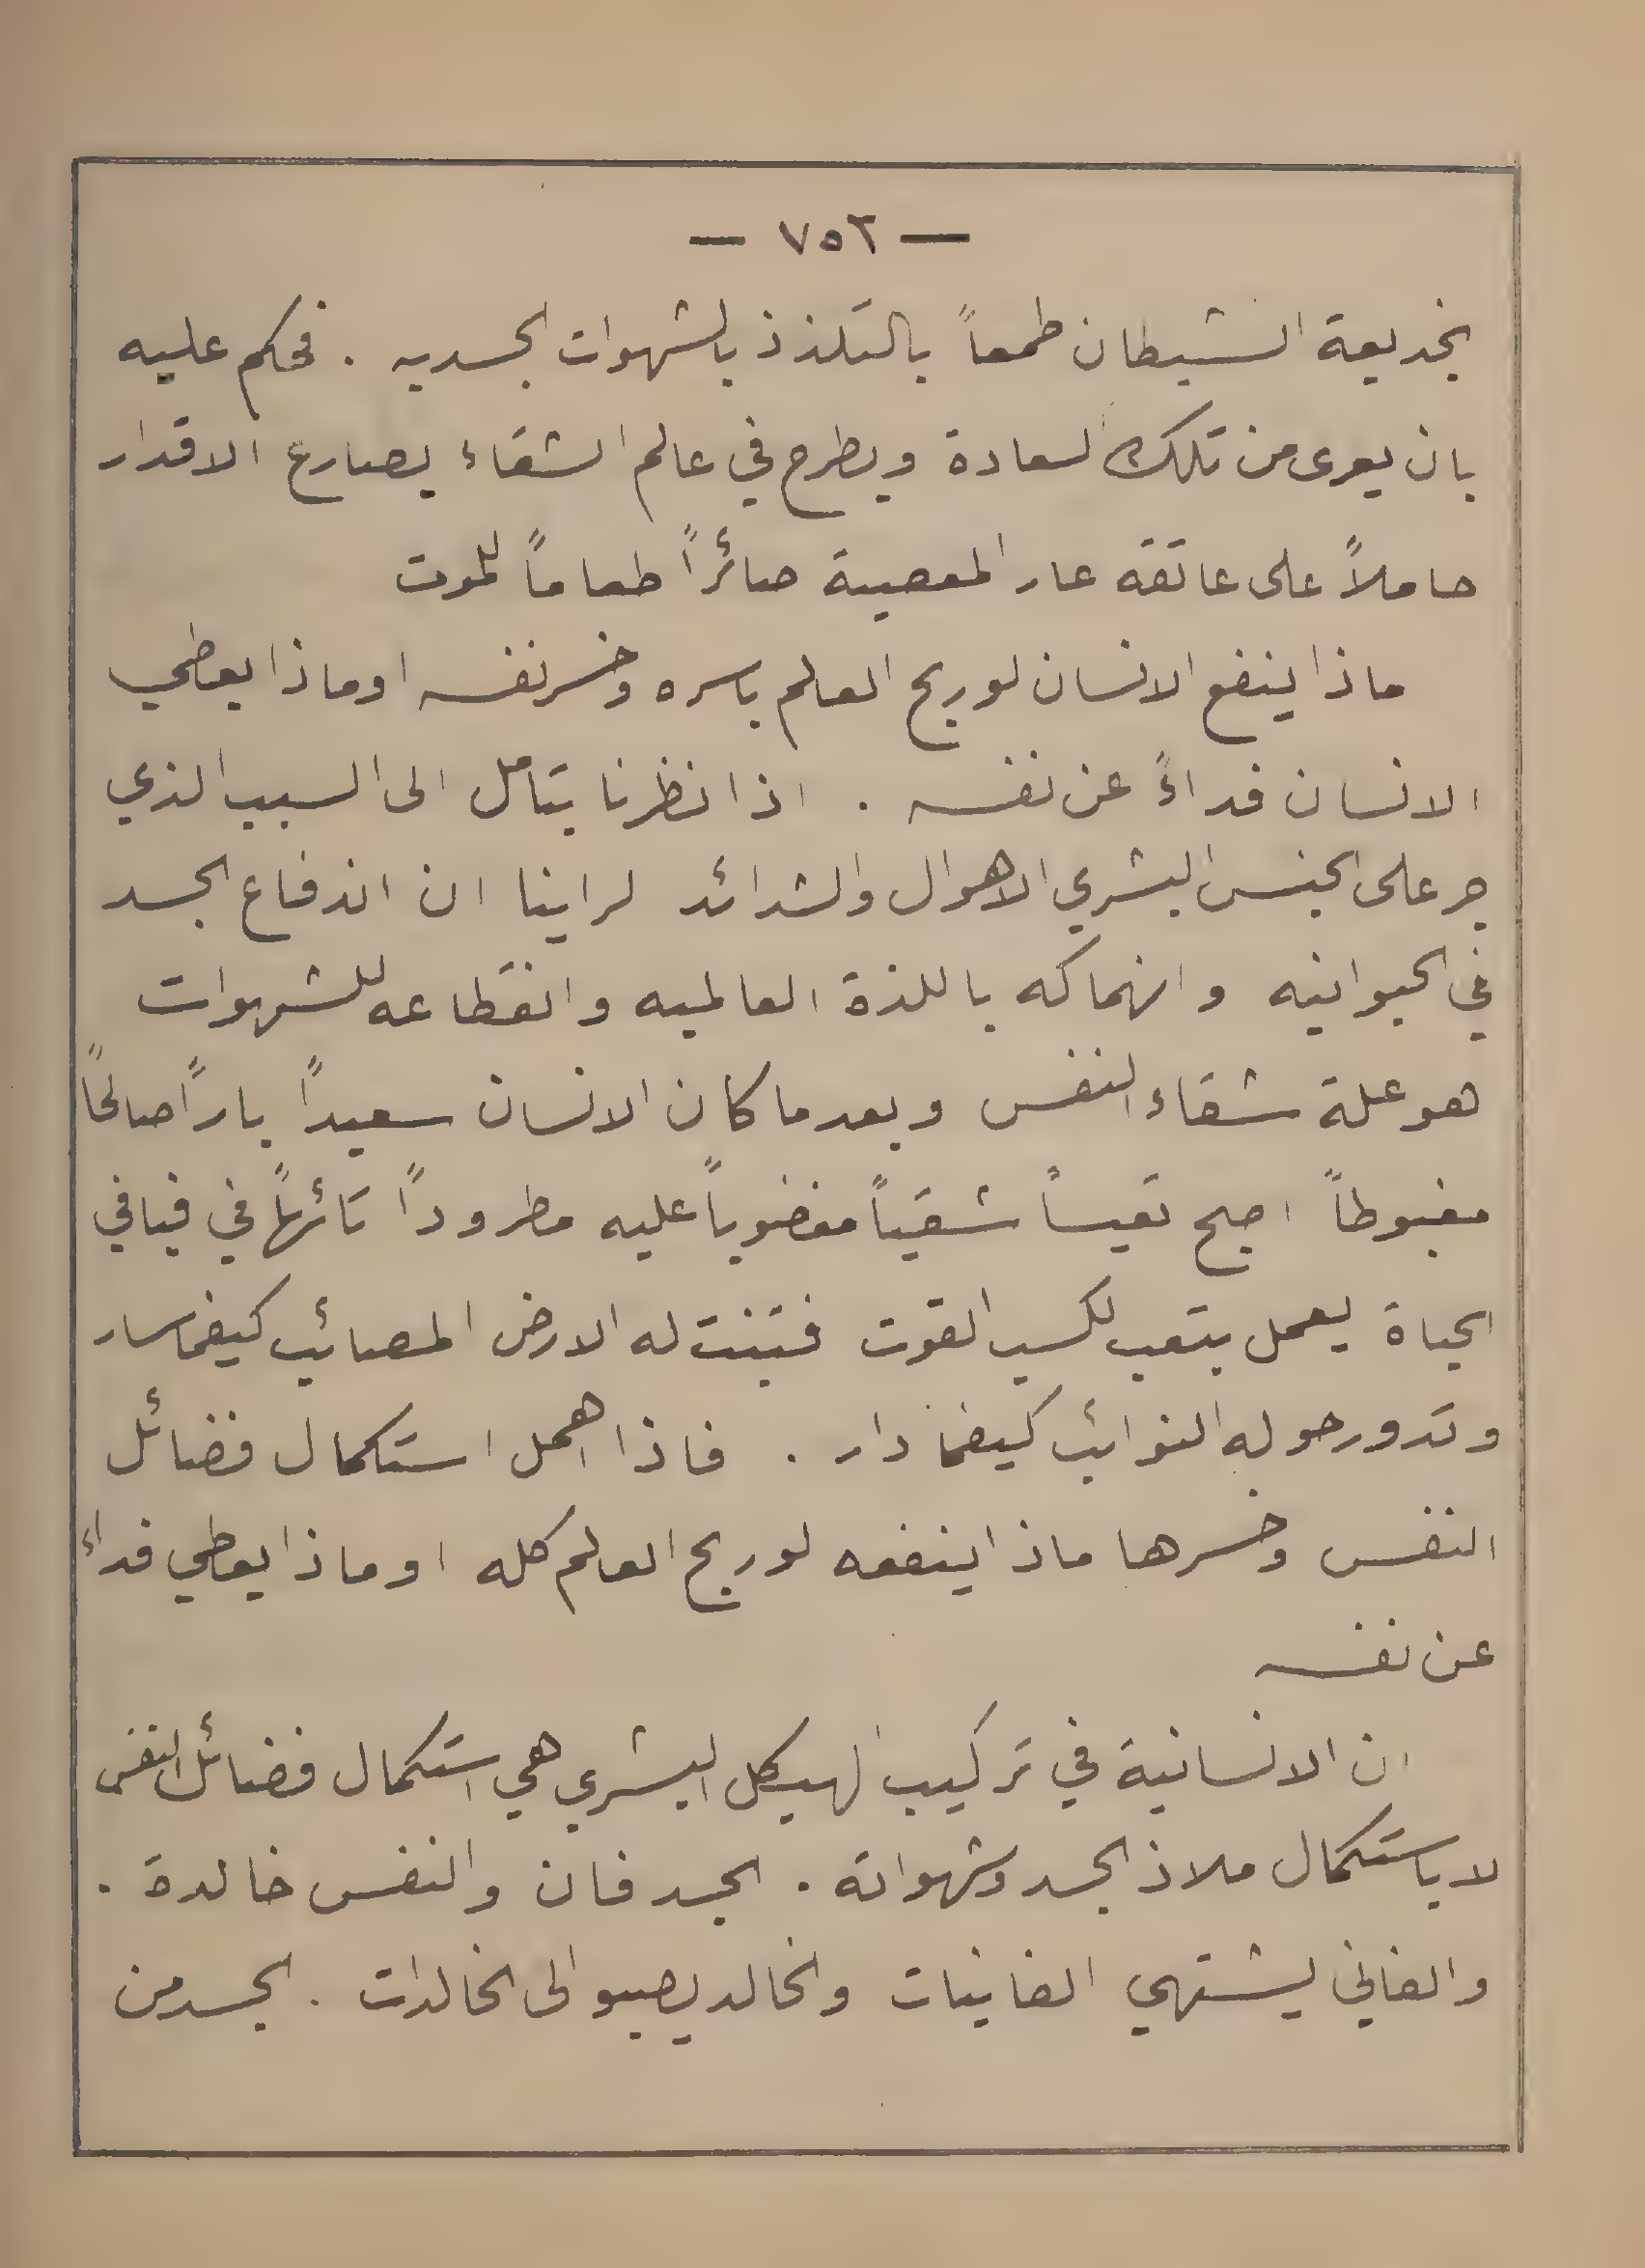 — ٧٥٢ —
بخديعة الشيطان طمعاً بالتلذذ بالشهوات الجسديه . فحكم عليه
بان يعرى من تلك السعادة ويطرح في عالم الشقاء يصارع الاقدار
حاملاً على عاتقه عار المعصية صائراً طعاماً للموت
ماذا ينفع الانسان لو ربح العالم باسره وخسر نفسه او ماذا يعطي
الانسان فداءً عن نفسه . اذا نظرنا بتامل الى السبب الذي
جر على الجنس البشري الاهوال والشدائد لراينا ان اندفاع الجسد
في الحيوانيه وانهماكه باللذة العالميه وانقطاعه للشهوات
هو علة شقاء النفس وبعد ما كان الانسان سعيداً باراً صالحاً
مغبوطاً اصبح تعيساً شقياً مغضوباً عليه مطروداً تائهاً في فيافي
الحياة يعمل بتعب لكسب القوت فتبنت له الارض المصائب كيفما سار
وتدور حوله النوائب كيفما دار . فاذا اهمل استكمال فضائل
النفس وخسرها ماذا ينفعه لو ربح العالم كله او ماذا يعطي فداء
عن نفسه
ان الانسانية في تركيب الهيكل البشري هي استكمال فضائل النفس
لا باستكمال ملاذ الجسد وشهواته . الجسد فان والنفس خالدة .
والفاني يشتهي الفانيات والخالد يصبو الى الخالدات . الجسد من